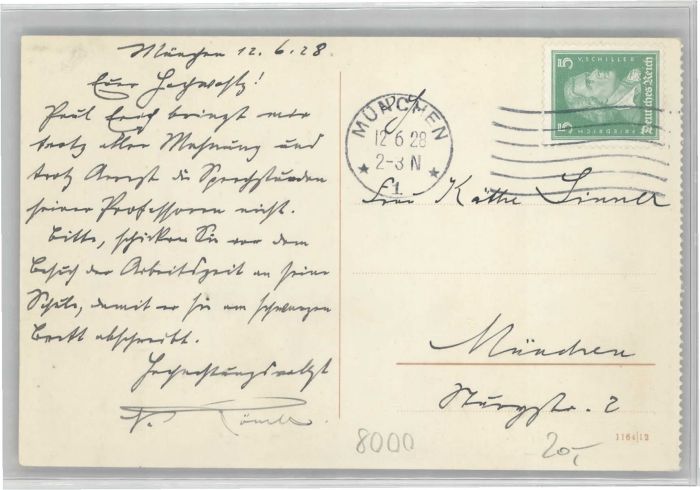 München 12.6.28
Euer Hochwohlg!
Paul Erich bringt mir
trotz aller Mahnung und
trotz Arrest die Sprechstunden
seiner Professoren nicht.
Bitte, schicken Sie vor dem
Besuch der Arbeitszeit an seine
Schule, damit er sie am schwarzen
Brett abschreibt.
Hochachtungsvollst
MÜNCHEN
12 6 28
2-3 N
1.
5
V. SCHILLER
Deutsches Reich
FRIEDRICH
5
Frau Käthe
München
Sturystr. 2
8000
20,-
1164/12